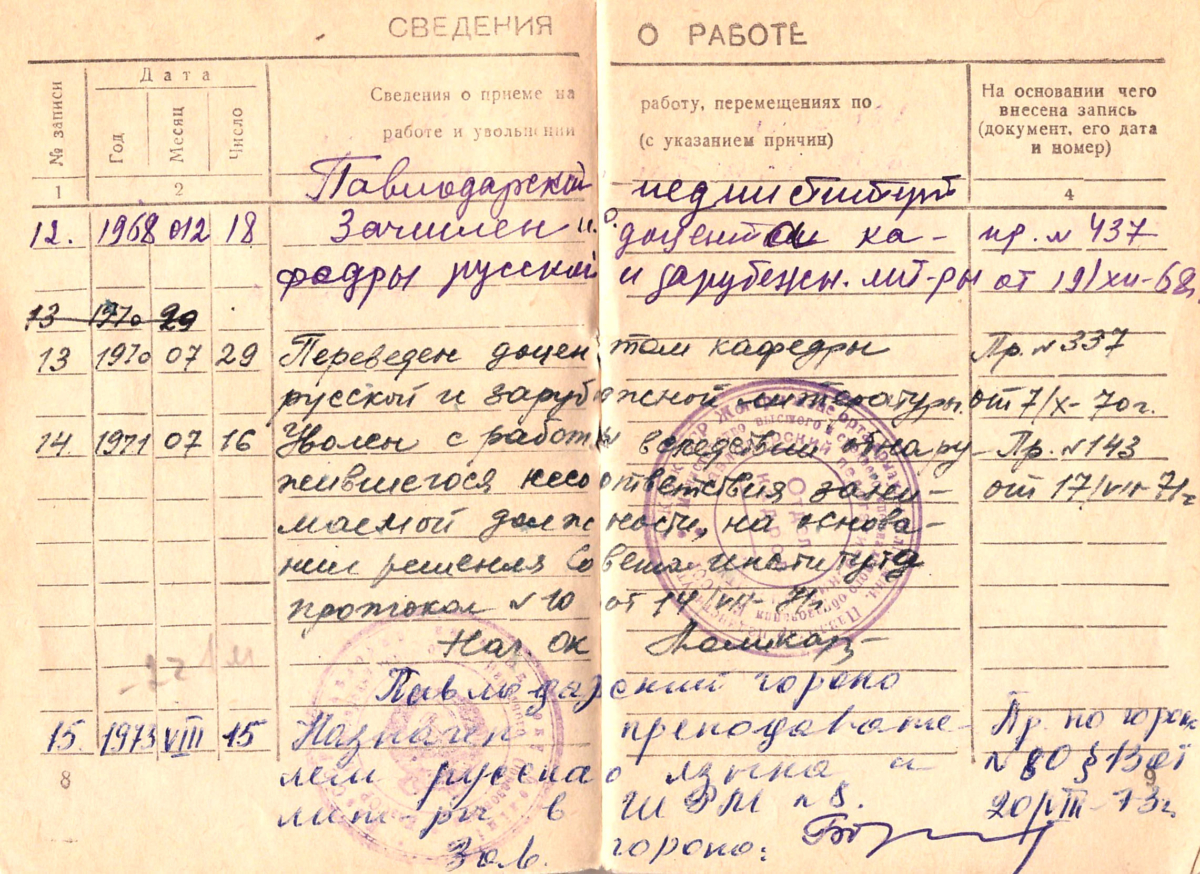 СВЕДЕНИЯ О РАБОТЕ
№ записи
Дата
Год
Месяц
Число
Сведения о приеме на работу, перемещениях по
работе и увольнении (с указанием причин)
На основании чего
внесена запись
(документ, его дата
и номер)
1 2 4
Павлодарский пединститут
12. 1968 012 18 Зачислен и.о. доцента ка- пр. № 437
федры русской и зарубежн. лит-ры от 19/XII-68г
13 1970 29
13 1970 07 29 Переведен доцентом кафедры Пр. № 337
русской и зарубежной литературы. от 7/X-70г.
14. 1971 07 16 Уволен с работы вследствии обнару- Пр. № 143
жившегося несоответствия зани- от 17/VII-71г
маемой должности, на основа-
нии решения Совета института
протокол № 10 от 14/VII-71г
Нач ОК
Павлодарский гороно
15. 1973 VIII 15 Назначен преподавате- Пр. по гороно
лем русского языка и № 80 § 13 от
лит-ры в ШРМ № 8. 20/VIII-73г.
Зав. гороно:
Отдел
кадров
8
9